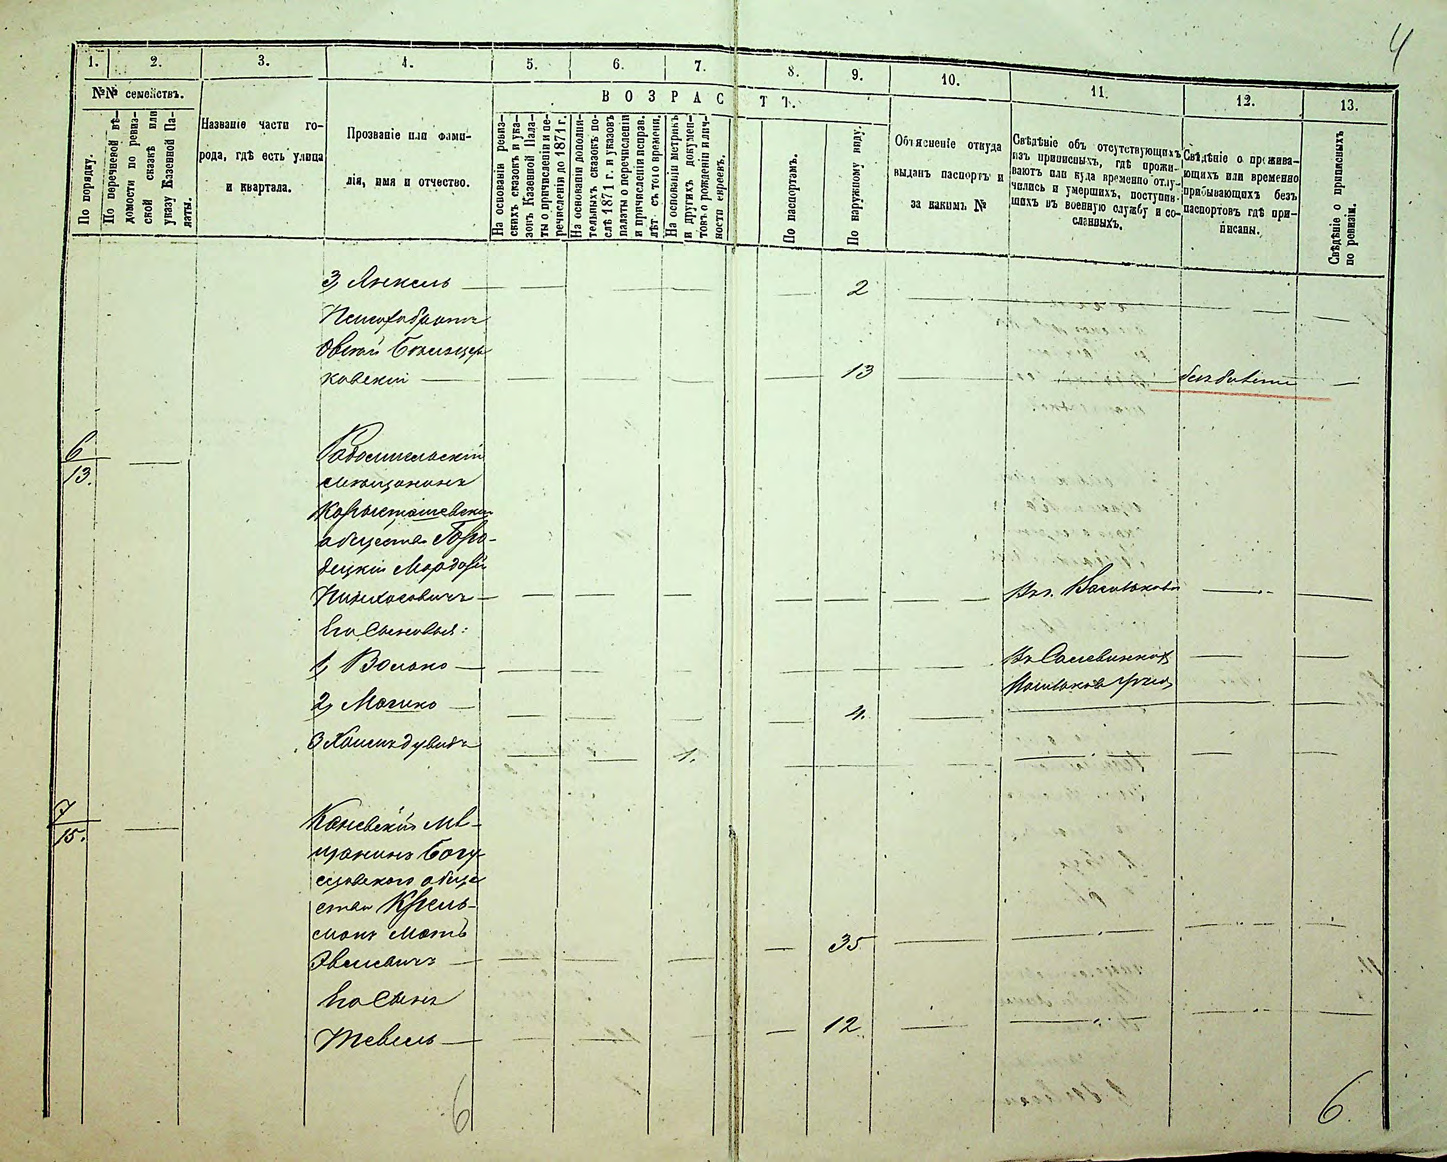 4
1. 2. 3. 4. 5. 6. 7. 8. 9. 10. 11. 12. 13.
№№ семействъ.
По порядку.
По перечневой вѣ-
домости по ревиз-
ской сказкѣ или
указу Казенной Па-
латы.
Названіе части го-
рода, гдѣ есть улица
и квартала.
Прозваніе или фами-
лія, имя и отчество.
ВОЗРАСТЪ.
На основаніи ревиз-
скихъ сказокъ и ука-
зовъ Казенной Пала-
ты о причисленіи и пе-
речисленіи до 1871 г.
На основаніи дополни-
тельныхъ сказокъ по-
слѣ 1871 г. и указовъ
палаты о перечисленіи
и причисленіи исправ.
лѣтъ съ того времени.
На основаніи метрикъ
и другихъ докумен-
товъ о рожденіи и лич-
ности евреевъ.
По паспортамъ.
По наружному виду.
Объясненіе откуда
выданъ паспортъ и
за какимъ №
Свѣдѣніе объ отсутствующихъ
изъ приписныхъ, гдѣ прожи-
ваютъ или куда временно отлу-
чились и умершихъ, поступив-
шихъ въ военную службу и со-
сланныхъ.
Свѣдѣніе о прожива-
ющихъ или временно
прибывающихъ безъ
паспортовъ гдѣ при-
писаны.
Свѣдѣніе о приписныхъ
по ревизіи.
3, Янкель — — — — — 2 — — — —
ковскій — — — — — 13 — —
6
13. — Радомысльскій
мѣщанинъ
Коростышевскаго
общества Горо-
децкій Мордко
Пинхасовичъ — — — — — — — Въ г. Васильковѣ — —
Его Сыновья:
1, Волько — — — — — — —
2, Мошко — — — — — 4. — — — —
3 Хаимъ Дувидъ — — 1. — — — — — —
7
15. — Каневскій мѣ-
щанинъ Богу-
славскаго обще
ства Крель-
манъ Моть
— — — — — 35 — — — —
Его Сынъ
Тевель — — — — — 12 — — — —
6 6